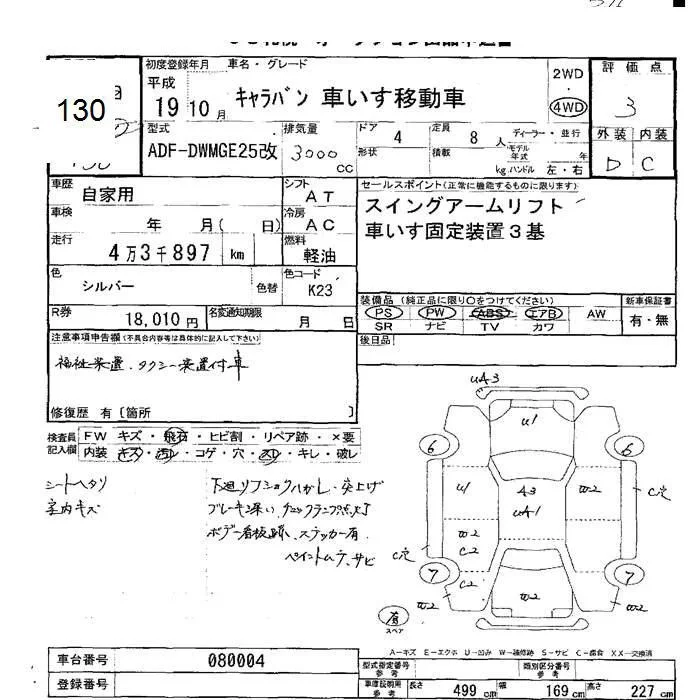 130
初度登録年月 車名・グレード
平成 19 10月
キャラバン 車いす移動車
2WD
・
4WD
評価点
3
外装 内装
D C
型式
ADF-DWMGE25改
排気量
3000 CC
ドア 4
形状
定員 8 人
積載 kg
ディーラー・並行
モデル年式 年
ハンドル 左・右
車歴 自家用
車検 年 月( 日)
走行 4万3千897 km
シフト AT
冷房 AC
燃料 軽油
色 シルバー 色替
色コード K23
R券 18,010円
名変通知期限 月 日
セールスポイント(正常に機能するものに限ります)
スイングアームリフト
車いす固定装置3基
装備品(純正品に限り○をつけてください)
PS PW ABS エアB AW
SR ナビ TV カワ
新車保証書
有・無
後日品
注意事項申告欄(不具合内容等は具体的に記入して下さい)
福祉装置、タクシー装置付車
修復歴 有〔箇所 〕
検査員記入欄
FW キズ・飛石・ヒビ割・リペア跡・×要
内装 キズ・汚レ・コゲ・穴・スレ・キレ・破レ
シートヘタリ
室内キズ
ボデー看板跡、ステッカー有
ペイントムラ、サビ
uA3
u1
6 6
u1
A3
uA1
W2
C穴
W2
C2
C穴
7 7
C2
W2
W2
W2
有
スペア
A-キズ E-エクボ U-凹み W-補修跡 S-サビ C-腐食 XX-交換済
車台番号 080004
登録番号
型式指定番号 参考
類別区分番号 参考
車庫証明用 参考
長さ 499 cm 幅 169 cm 高さ 227 cm